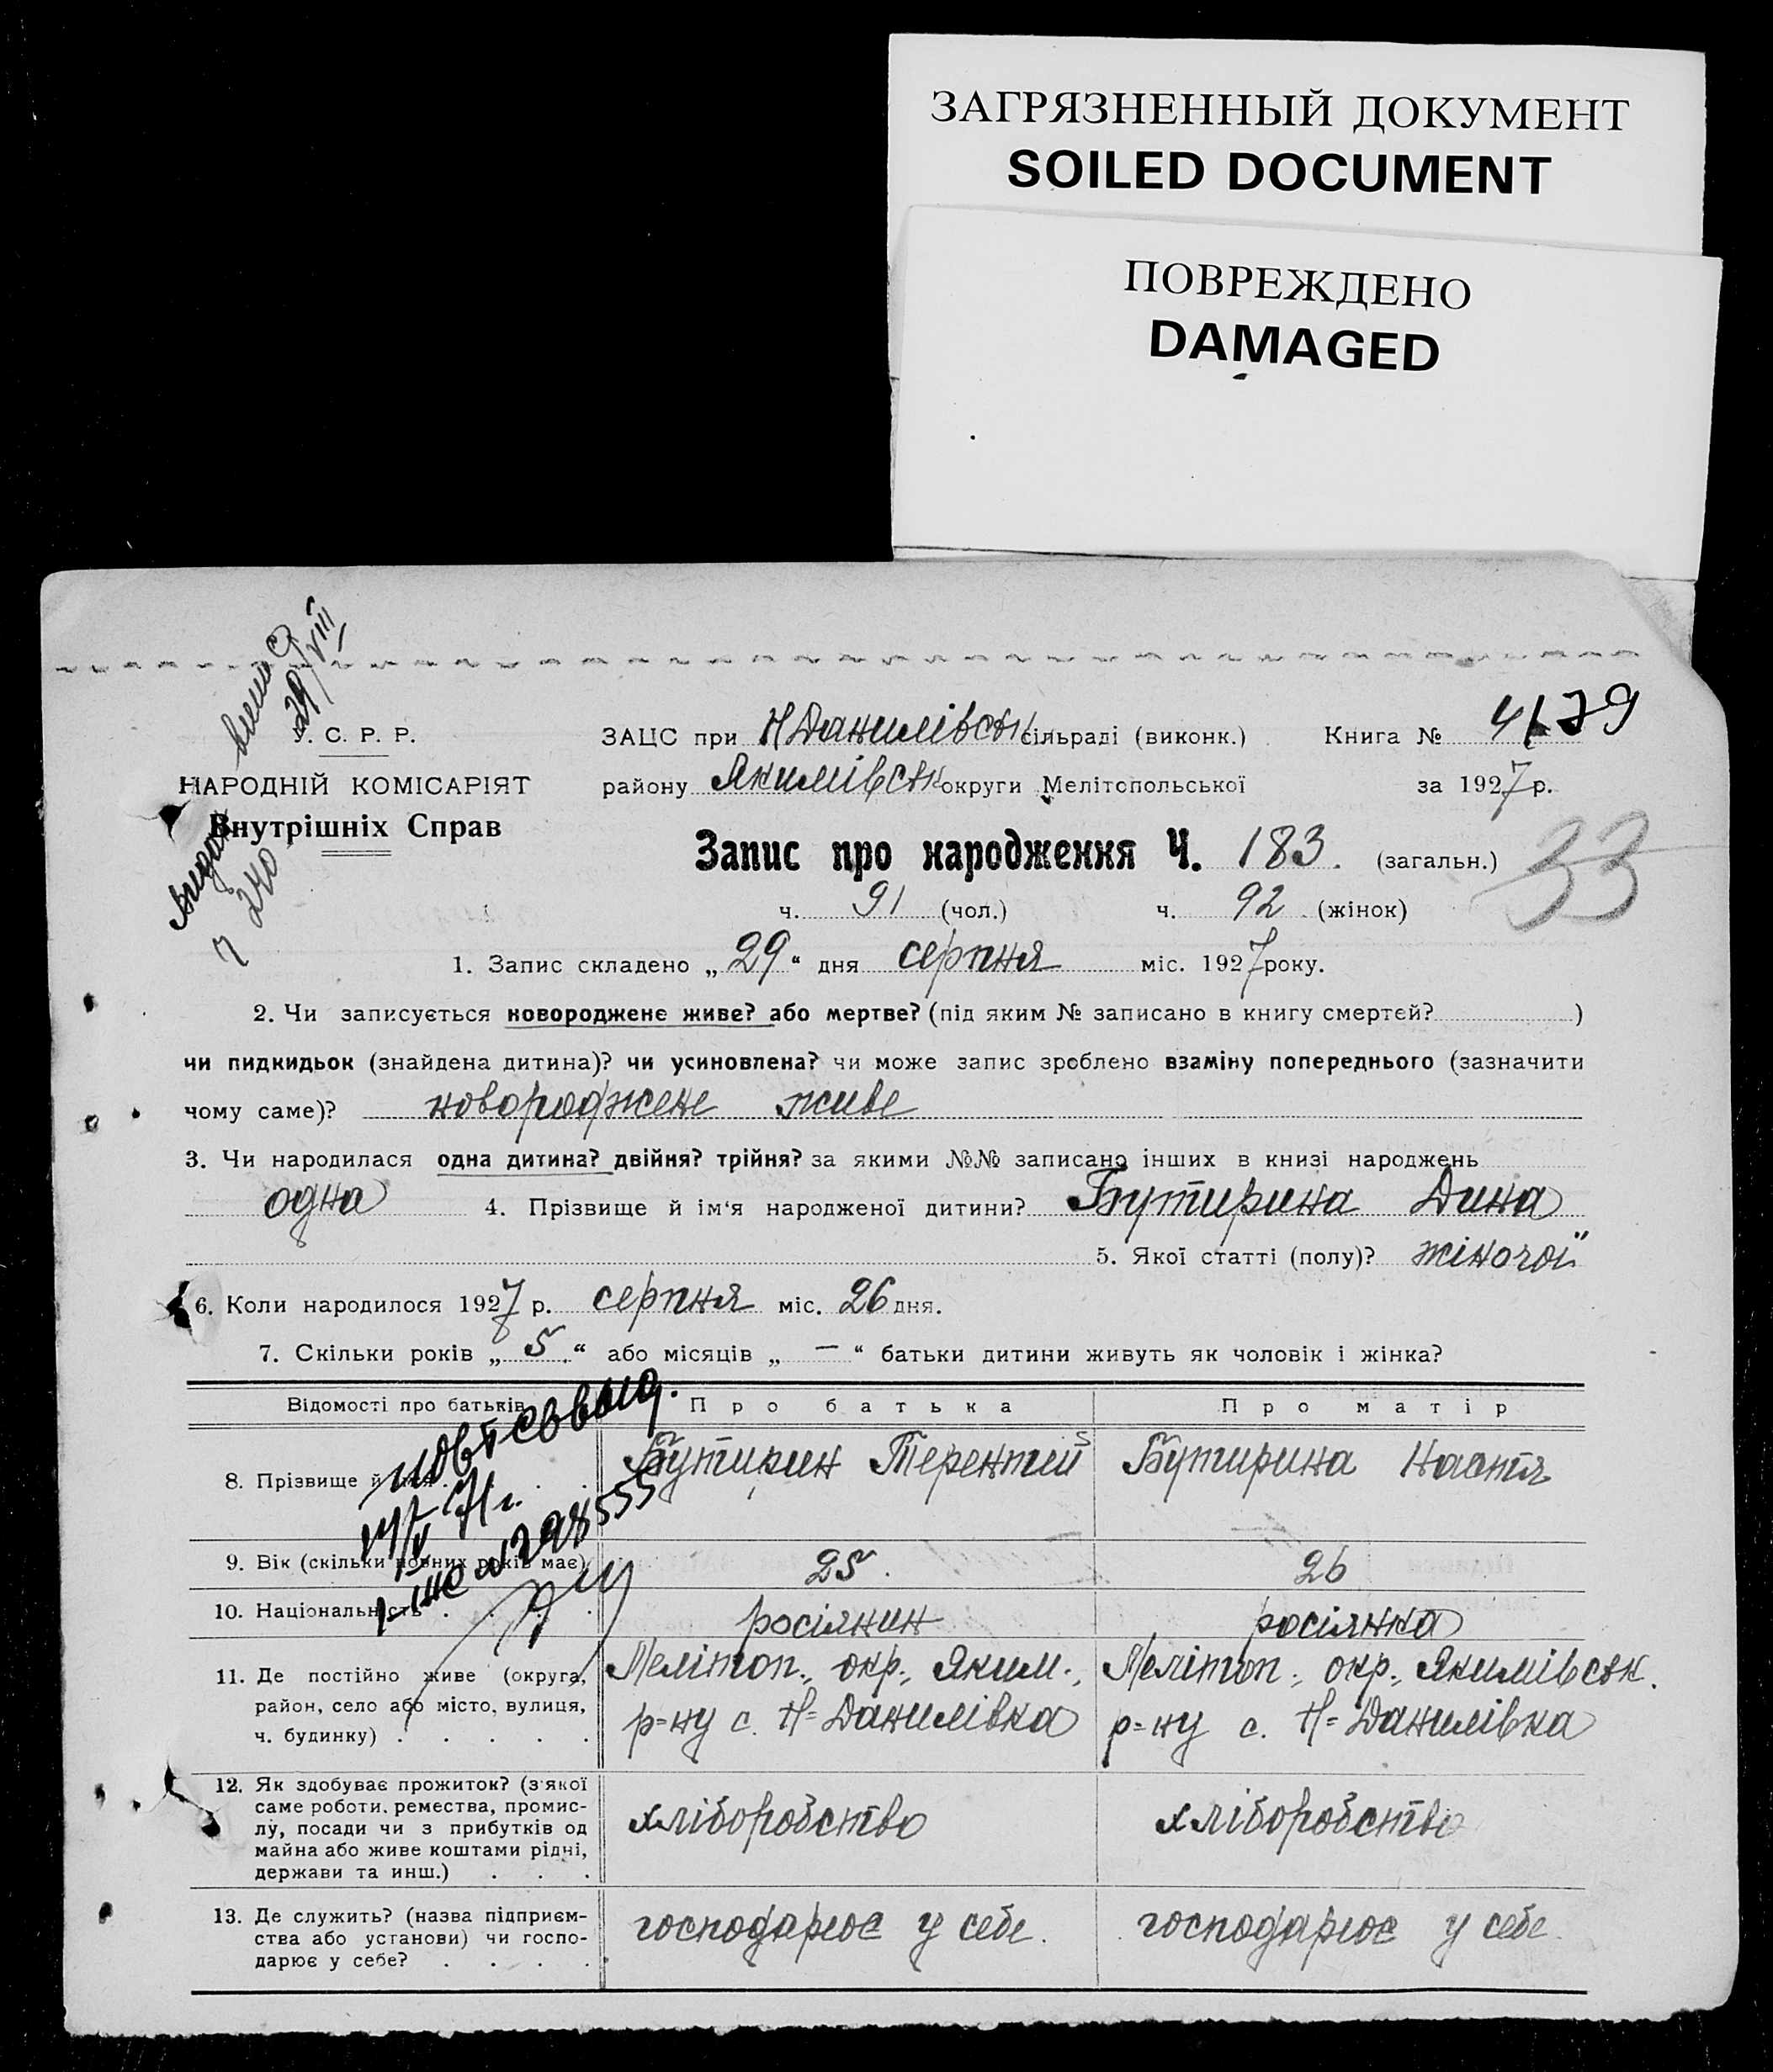 ЗАГРЯЗНЕННЫЙ ДОКУМЕНТ
SOILED DOCUMENT
ПОВРЕЖДЕНО
DAMAGED
29/VIII
У. С. Р. Р.
НАРОДНІЙ КОМІСАРІЯТ
Внутрішніх Справ
ч 240
ЗАЦС при Н Данилівськ сільраді (виконк.) Книга №
району Якимівськ округи Мелітопольської за 1927 р.
Запис про народження Ч. 183. (загальн.) 33
ч. 91 (чол.) ч. 92 (жінок)
1. Запис складено „29“ дня серпня міс. 1927 року.
2. Чи записується новороджене живе? або мертве? (під яким № записано в книгу смертей? )
чи пидкидьок (знайдена дитина)? чи усиновлена? чи може запис зроблено взаміну попереднього (зазначити
чому саме)? новороджене живе
3. Чи народилася одна дитина? двійня? трійня? за якими №№ записано інших в книзі народжень
одна 4. Прізвище й ім‘я народженої дитини? Бутирина Дина
5. Якої статті (полу)? жіночої
6. Коли народилося 1927 р. серпня міс. 26 дня.
7. Скільки років „5“ або місяців „—“ батьки дитини живуть як чоловік і жінка?
Відомості про батьків Про батька Про матір
8. Прізвище й Бутирин Терентий Бутирина Настя
9. Вік (скільки повних років має) 25. 26
10. Національність росіянин росіянка
11. Де постійно живе (округа, район, село або місто, вулиця, ч. будинку)
Меліт оп., окр., Яким., Мелітоп., окр., Якимівськ.
р=ну с. Н=Данилівка р=ну с. Н=Данилівка
12. Як здобуває прожиток? (з якої
саме роботи, ремества, промис-
лу, посади чи з прибутків од
майна або живе коштами рідні,
держави та инш.)
хліборобство хліборобство
13. Де служить? (назва підприєм-
ства або установи) чи госпо-
дарює у себе?
господарює у себе. господарює у себе.